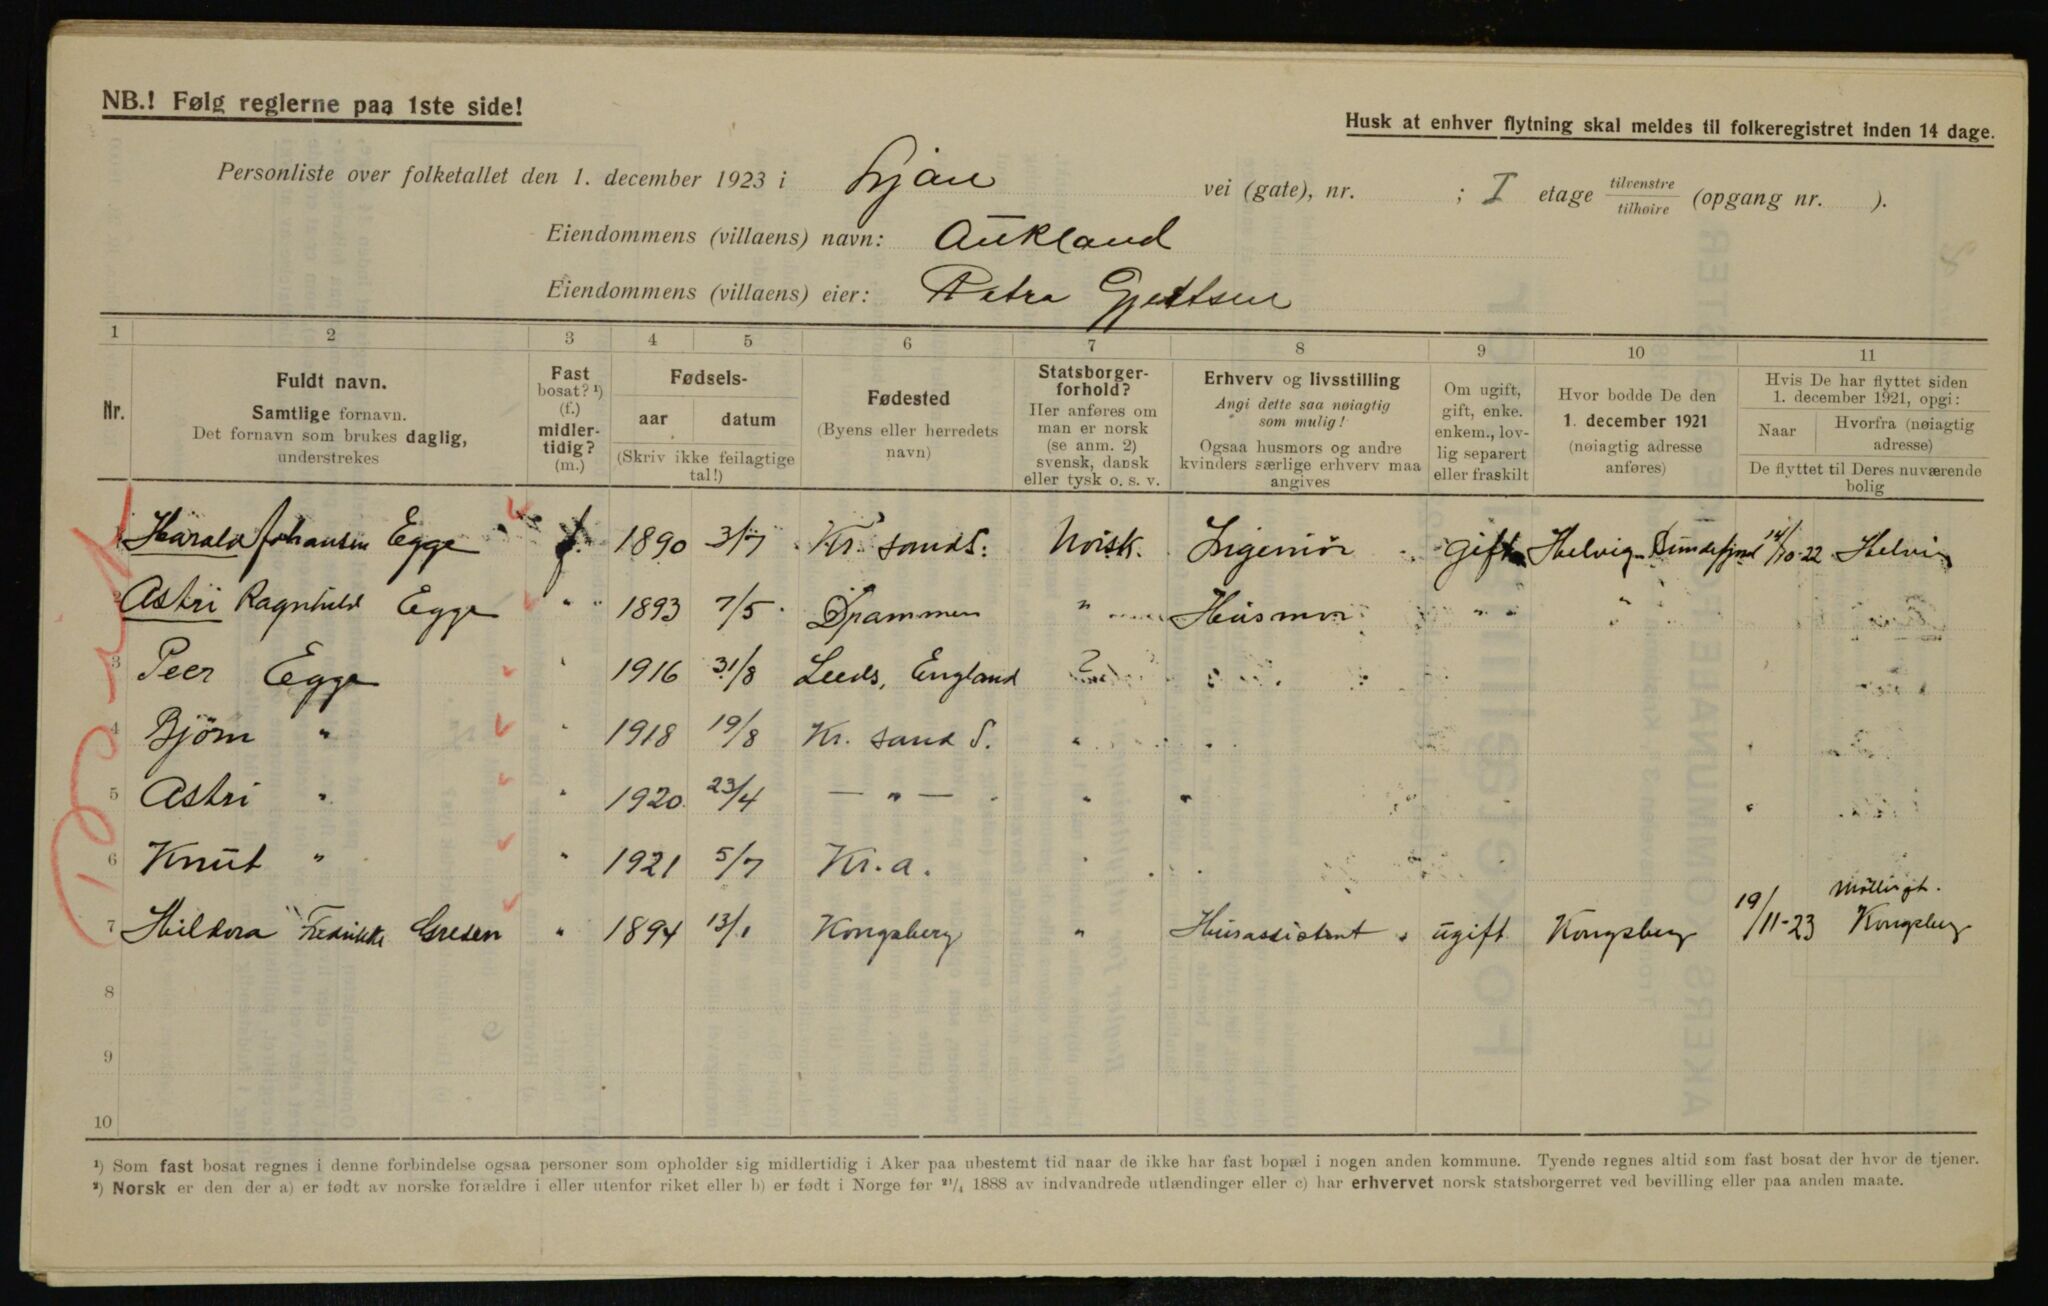 NB.! Følg reglerne paa 1ste side!
Husk at enhver flytning skal meldes til folkeregistret inden 14 dage.
Personliste over folketallet den 1. december 1923 i Ljan vei (gate), nr. ; I etage tilvenstre/tilhøire (opgang nr. ).
Eiendommens (villaens) navn: Aukland
Eiendommens (villaens) eier: Petra Gjettsen
1 2 3 4 5 6 7 8 9 10 11
Nr.
Fuldt navn.
Samtlige fornavn.
Det fornavn som brukes daglig,
understrekes
Fast
bosat? ¹)
(f.)
midler-
tidig?
(m.)
Fødsels-
aar datum
(Skriv ikke feilagtige
tal!)
Fødested
(Byens eller herredets
navn)
Statsborger-
forhold?
Her anføres om
man er norsk
(se anm. 2)
svensk, dansk
eller tysk o. s. v.
Erhverv og livsstilling
Angi dette saa nøiagtig
som mulig!
Ogsaa husmors og andre
kvinders særlige erhverv maa
angives
Om ugift,
gift, enke.
enkem., lov-
lig separert
eller fraskilt
Hvor bodde De den
1. december 1921
(nøiagtig adresse
anføres)
Hvis De har flyttet siden
1. december 1921, opgi:
Naar
Hvorfra (nøiagtig
adresse)
De flyttet til Deres nuværende
bolig
1 Harald Johansen Egge f. 1890 3/7 Kr. sand S. Norsk. Ingeniør gift Helvig Bundefjord 14/10-22 Helvig
2 Astri Ragnhild Egge " 1893 7/5 Drammen " Husmor " " "
3 Peer Egge " 1916 31/8 Leeds, England
4 Bjørn " " 1918 19/8 Kr. sand S. "
5 Astri " " 1920 23/4 — " — "
6 Knut " " 1921 5/7 Kr.a. "
7 Hildora Fredrikke Gresen " 1894 13/1 Kongsberg " Husassistent ugift Kongsberg 19/11-23 Kongsberg
8
9
10
¹) Som fast bosat regnes i denne forbindelse ogsaa personer som opholder sig midlertidig i Aker paa ubestemt tid naar de ikke har fast bopæl i nogen anden kommune. Tyende regnes altid som fast bosat der hvor de tjener.
²) Norsk er den der a) er født av norske forældre i eller utenfor riket eller b) er født i Norge før ²¹/₄ 1888 av indvandrede utlændinger eller c) har erhvervet norsk statsborgerret ved bevilling eller paa anden maate.